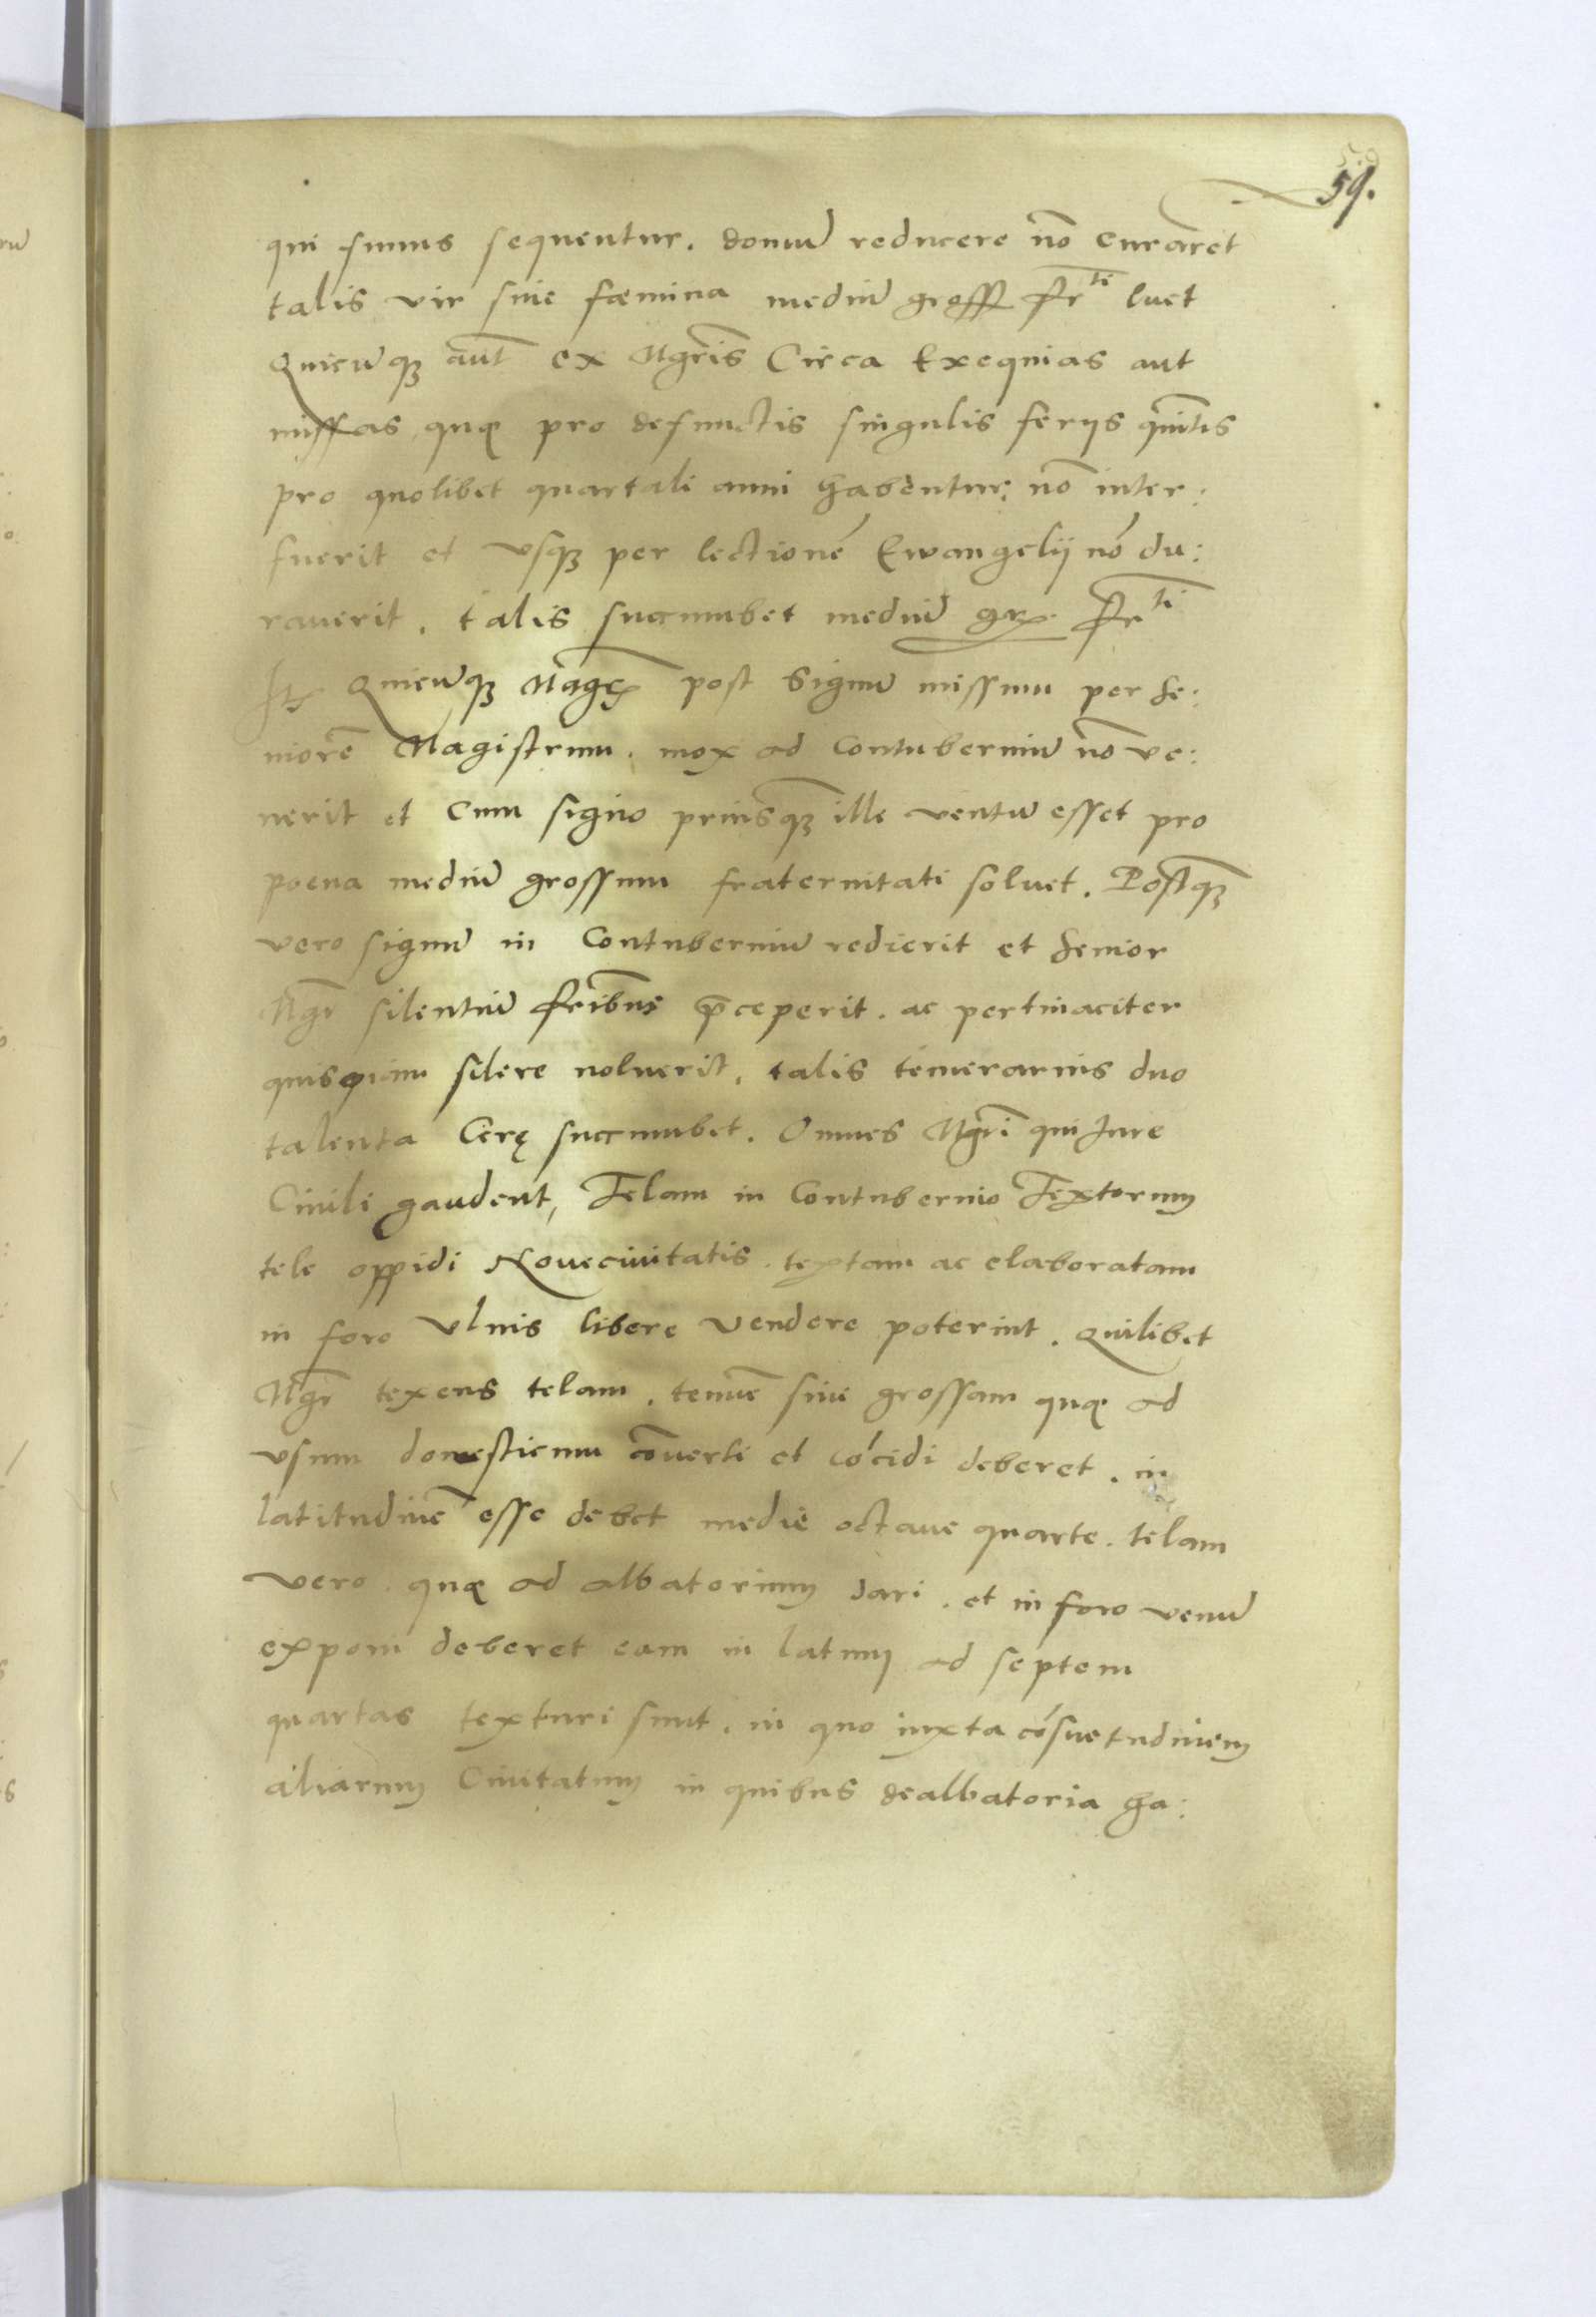 59.
qui funus sequentur. domū reducere nō curaret
talis vir siue fœmina mediū gross frti luet
Quicūq aūt ex Mgrīs Circa Exequias aut
missas quę pro defunctis singulis feryis quītis
pro quolibet quartali anni habentur, nō inter:
fuerit et vsq per lectionē Ewangelij nō du:
rauerit. talis succumbet mediū gr frti
Ite Quicūq Magr post Signū missum per se:
niorē Magistrum. mox ad Contuberniū nō ve:
nerit et Cum signo priusq ille ventū esset pro
poena mediū grossum fraternitati soluet. Postq
vero signū in Contuberniū redierit et senior
Mgr silentiū fribus p̄ceperit. ac pertinaciter
quispiam silere noluerit, talis temerarius duo
talenta Cerę succumbet. Omnes Mgrī qui Jure
Ciuili gaudent, Telam in Contubernio Textorum
tele oppidi Noueciuitatis. textam ac elaboratam
in foro Vlnis libere Vendere poterint. Quilibet
Mgr texens telam. tenuē siue grossam quę ad
vsum domesticum cōuerti et cōcidi deberet. in
latitudinē esse debet medie octaue quarte. telam
vero. quę ad albatorium dari. et in foro venū
exponi deberet eam in latum ad septem
quartas texturi sunt. in quo iuxta cōsuetudinem
aliarum Ciuitatum in quibus dealbatoria ha: